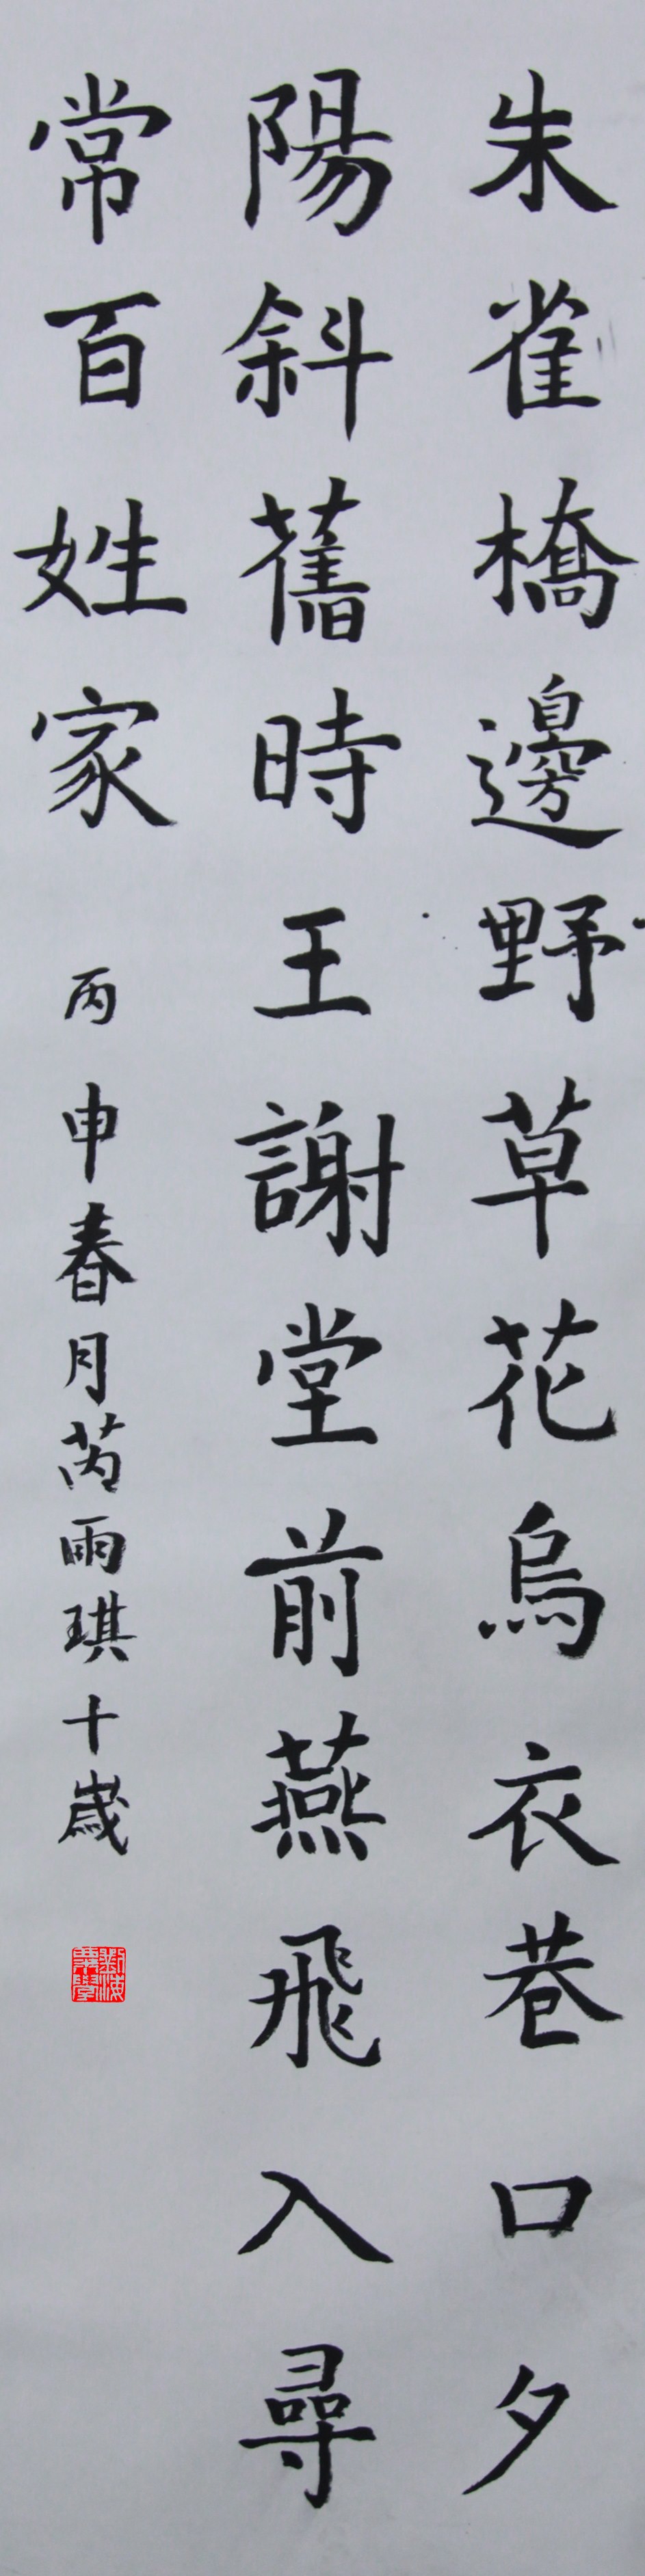 朱雀橋邊野草花烏衣巷口夕
陽斜舊時王謝堂前燕飛入尋
常百姓家
丙申春月芮雨琪十歲